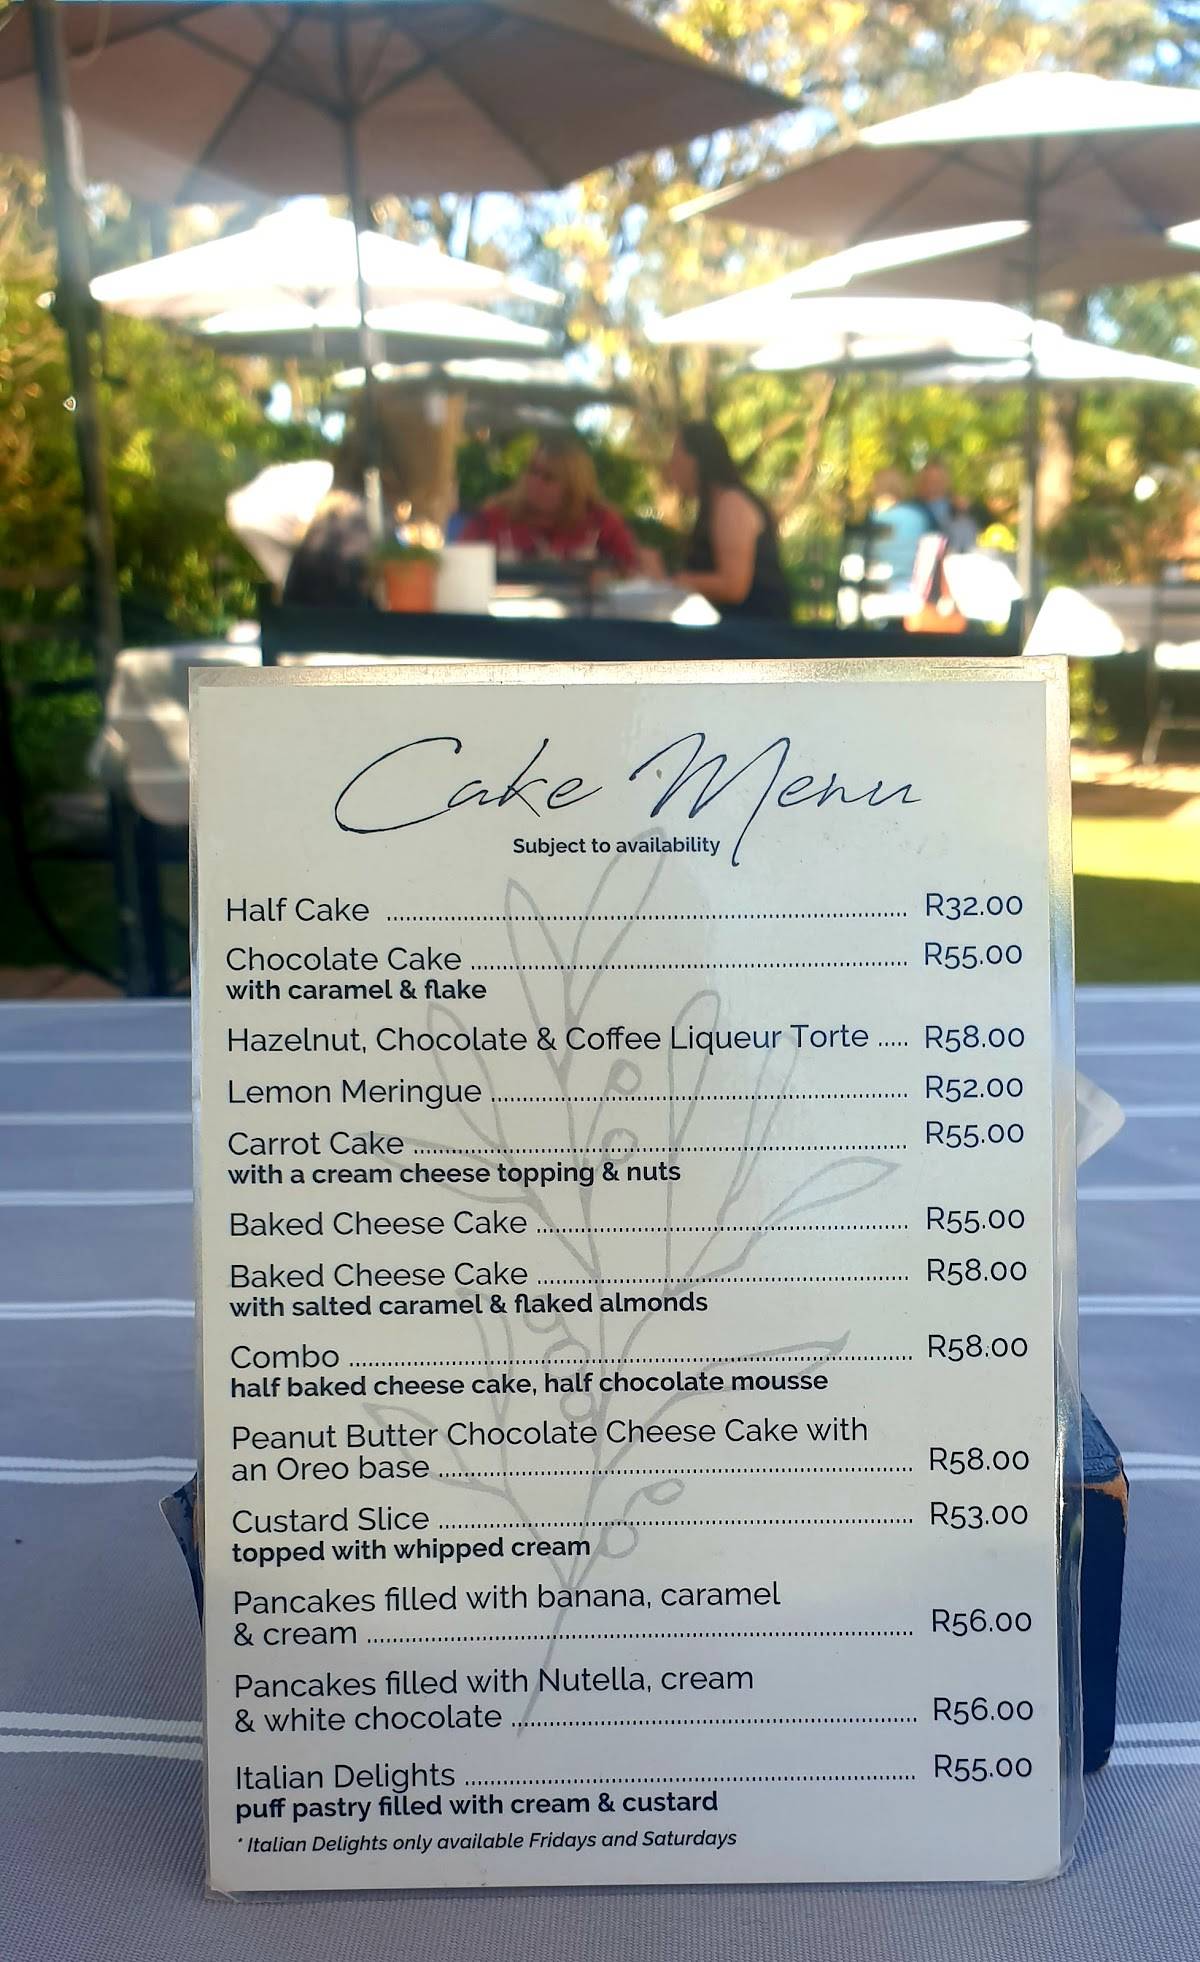 Cake Menu
Subject to availability
Half Cake ........ R32.00
Chocolate Cake ........ R55.00
with caramel & flake
Hazelnut, Chocolate & Coffee Liqueur Torte ..... R58.00
Lemon Meringue ........ R52.00
Carrot Cake ........ R55.00
with a cream cheese topping & nuts
Baked Cheese Cake ........ R55.00
Baked Cheese Cake ........ R58.00
with salted caramel & flaked almonds
Combo ........ R58.00
half baked cheese cake, half chocolate mousse
Peanut Butter Chocolate Cheese Cake with
an Oreo base ........ R58.00
Custard Slice ........ R53.00
topped with whipped cream
Pancakes filled with banana, caramel
& cream ........ R56.00
Pancakes filled with Nutella, cream
& white chocolate ........ R56.00
Italian Delights ........ R55.00
puff pastry filled with cream & custard
* Italian Delights only available Fridays and Saturdays